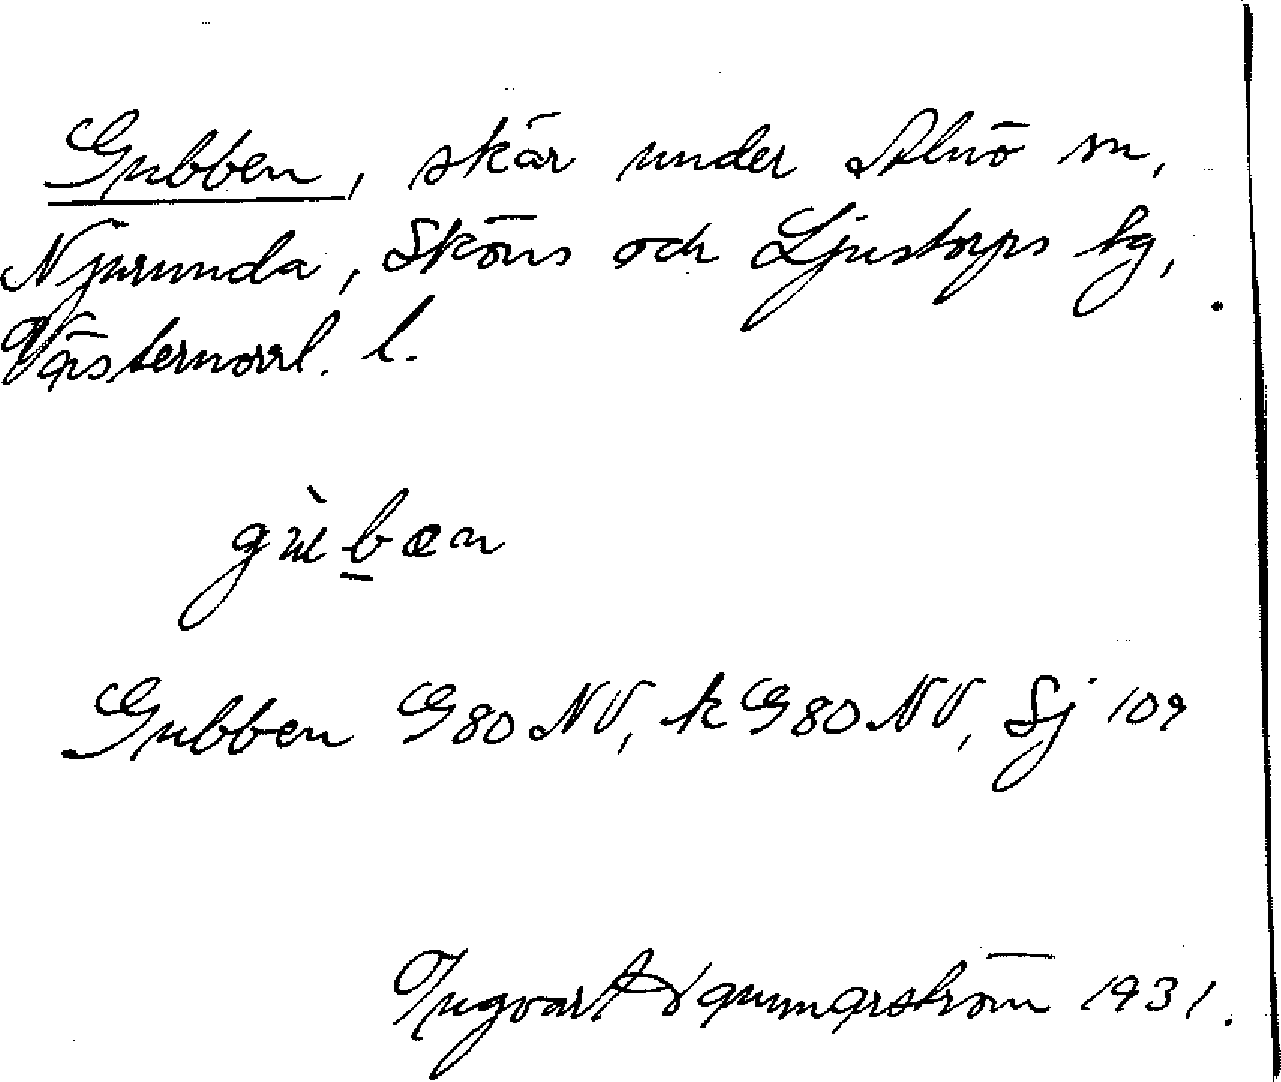 Gubben, skär under Alnö sn,
Njurunda, Sköns och Ljustorps tg,
Västernorrl. l.
gùbæn
Gubben G80NV, k G80NV, Sj 109
Ingvart Hammarström 1931.